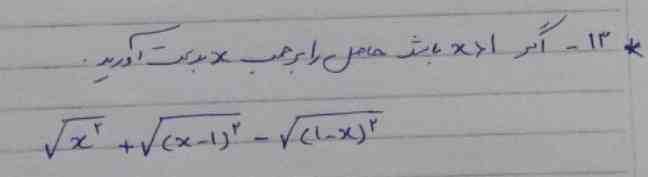 * ۱۳ - اگر x>1 باشد حاصل را برحسب x بدست آورید.
√x^۲ + √(x-1)^۲ - √(1-x)^۲